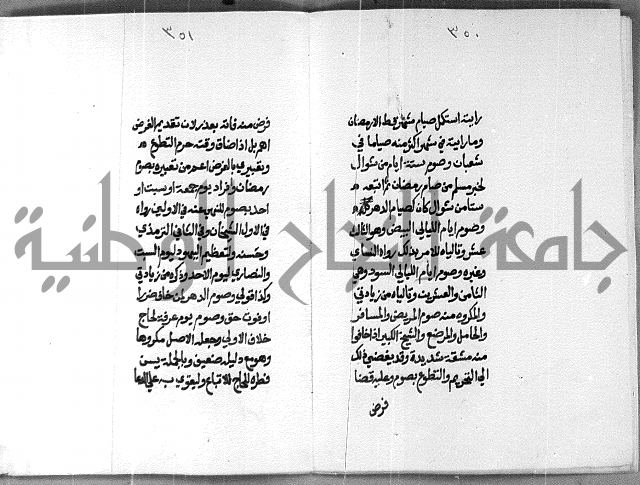 ٣٥٠
رايته استكمل صيام شهر قط الا رمضان
وما رايته في شهر اكثر منه صياما في
شعبان وصوم ستة ايام من شوال
لخبر مسلم من صام رمضان ثم اتبعه
ستا من شوال كان كصيام الدهر
وصوم ايام الليالي البيض وهو الثالث
عشر وتالياه للامر بذلك رواه النساي
وغيره وصوم ايام الليالي السود وهي
الثامن والعشرين وتالياه من زيادتي
والمكروه منه صوم المريض والمسافر
والحامل والمرضع والشيخ الكبير اذا خافوا
منه مشقة شديدة وقد يفضي ذلك
الي التحريم والتطوع بصوم وعليه قضا
فرض
٣٥١
فرض منه فاته بعذر لان تقديم الفرض
اهم بل اذا ضاق وقته حرم التطوع
وتعبيري بالفرض اعم من تعبيره بصوم
رمضان وافراد يوم جمعة او سبت او
احد بصوم للنهي عنه في الاولي رواه
في الاول الشيخان وفي الثاني الترمذي
وحسنه ولتعظيم اليهود ليوم السبت
والنصاري ليوم الاحد وذكره من زيادتي
وكذا قولي وصوم الدهر لمن خاف ضررا
او فوت حق وصوم يوم عرفة لحاج
خلاف الاولي وجعله الاصل مكروها
وهو مع دليله ضعيف وبالجملة يسن
فطره للحاج للاتباع وليقوي به علي الدعا
جامعة النجاح الوطنية